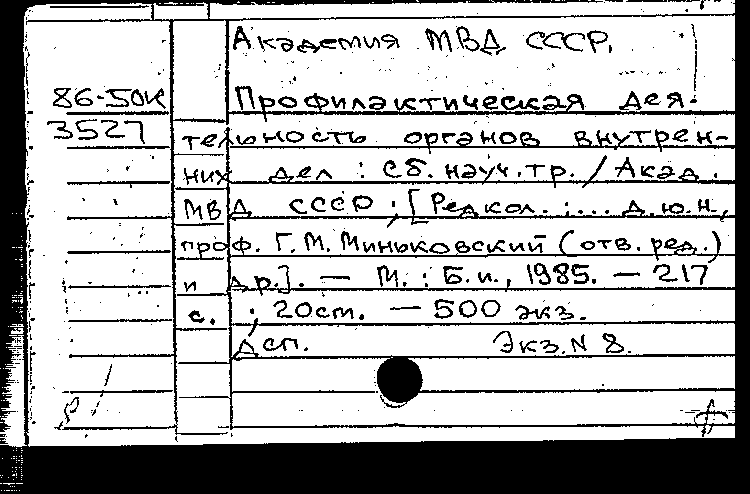 Академия МВД СССР.
86-50К Профилактическая дея-
3527 тельность органов внутрен-
них дел : сб. науч. тр. / Акад.
МВД СССР ; [Редкол. : ... д.ю.н.,
проф. Г. М. Миньковский (отв. ред.)
и др.]. — М. : Б. и., 1985. — 217
с. ; 20 см. — 500 экз.
Дсп. Экз. N 8.